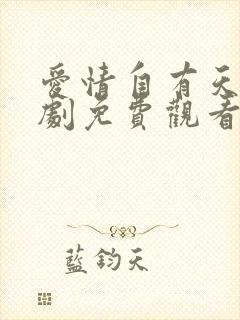 愛情自有天
劇免費觀看
藍鈞天